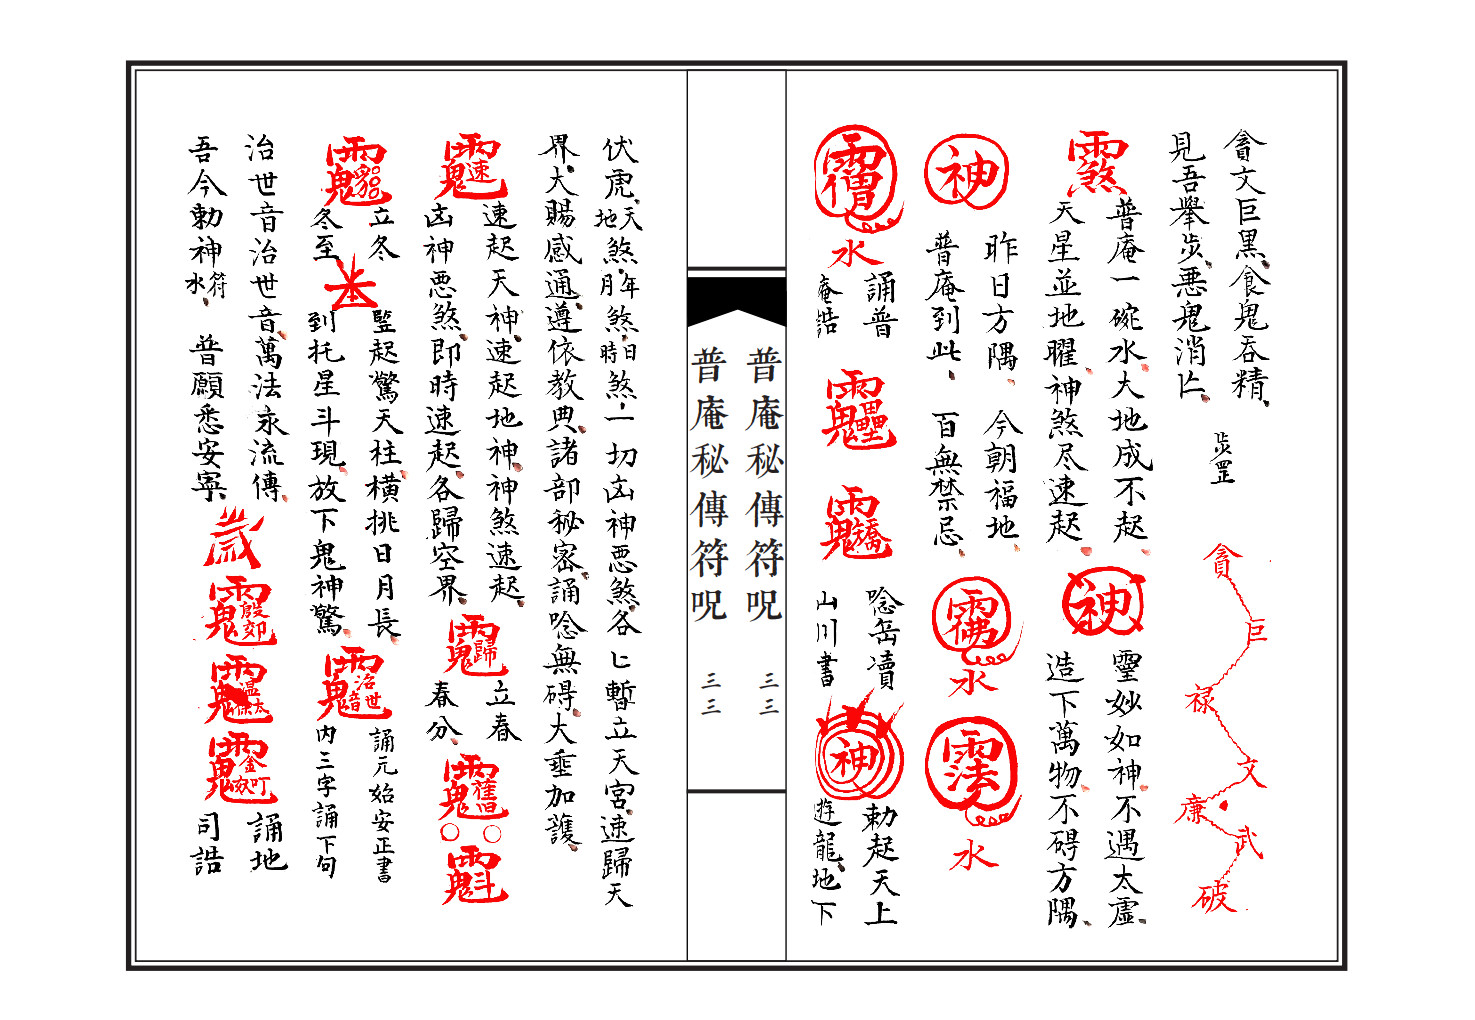 貪文巨黑食鬼吞精
見吾舉步惡鬼消亡
步罡
貪
巨
禄
文
廉
武
破
普庵一碗水大地成不起
天星並地曜神煞尽速起
神
靈妙如神不遇太虛
造下萬物不碍方隅
神
昨日方隅 今朝福地
普庵到此 百無禁忌
水
水
水
誦普
庵誥
唸岳瀆
山川書
神
勅起天上
遊龍地下
普庵秘傳符呪 三三
普庵秘傳符呪 三三
伏虎天地煞年月煞日時煞一切凶神悪煞各匕暫立天宮速歸天
界大賜感通遵依教典諸部秘密誦唸無碍大垂加護
速起天神速起地神神煞速起
凶神悪煞即時速起各歸空界
立春
春分
立冬
冬至
本
竪起驚天柱橫挑日月長
到托星斗現放下鬼神驚
誦元始安正書
内三字誦下句
治世音治世音萬法永流傳
吾今勅神符水 普願悉安寧
誦地
司誥